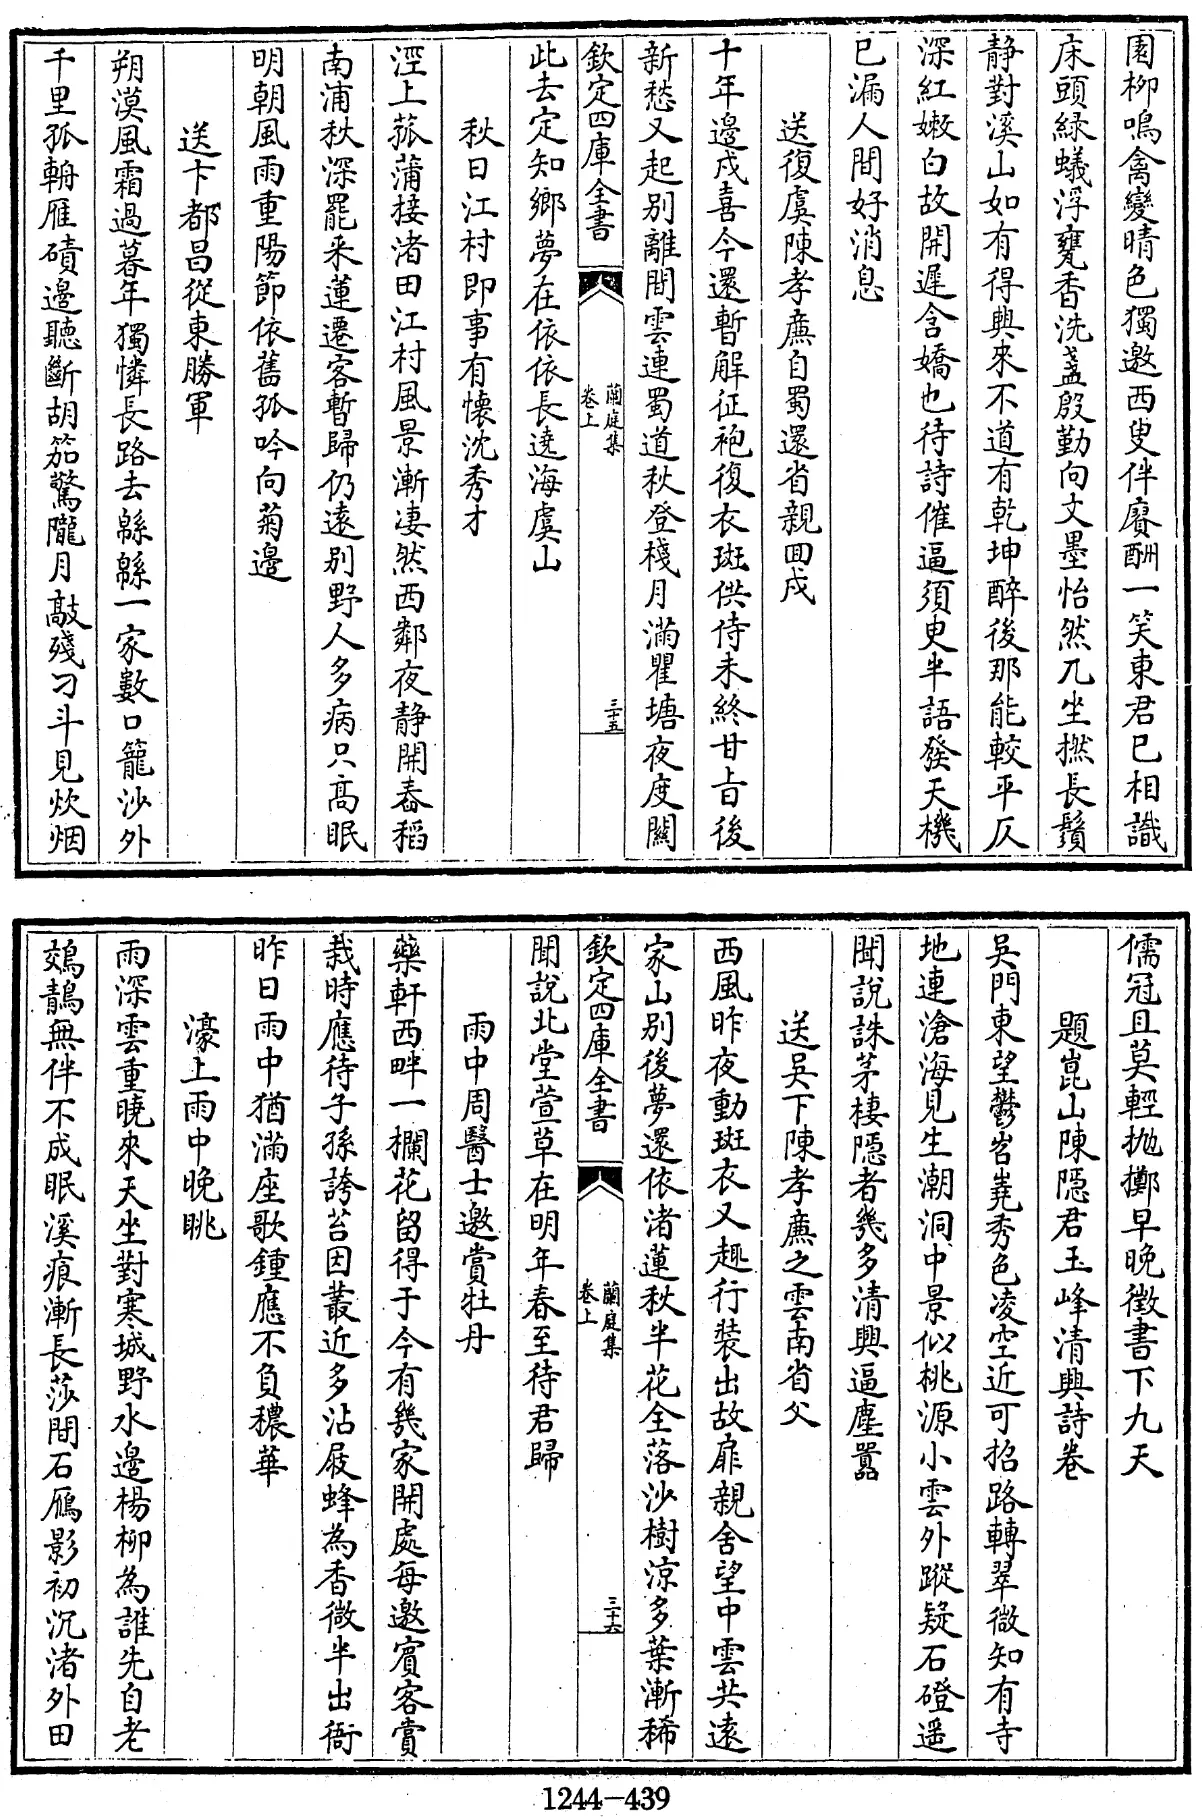 園柳鳴禽變晴色獨邀西叟伴賡酬一笑東君已相識
床頭緑蟻浮甕香洗盞殷勤向文墨怡然兀坐撚長鬚
静對溪山如有得興來不道有乾坤醉後那能較平仄
深紅嫩白故開遲含嬌也待詩催逼須臾半語發天機
已漏人間好消息
送復虞陳孝亷自蜀還省親回戍
十年邊戍喜今還暫解征袍復衣斑供侍未終甘㫖後
新愁又起别離間雲連蜀道秋登棧月滿瞿塘夜度關
欽定四庫全書
蘭庭集
卷上
三十五
此去定知鄉夢在依依長遶海虞山
秋日江村即事有懐沈秀才
溼上菰蒲接渚田江村風景漸凄然西鄰夜静開舂稻
南浦秋深罷采蓮遷客暫歸仍逺别野人多病只髙眠
明朝風雨重陽節依舊孤吟向菊邉
送卞都昌從東勝軍
朔漠風霜過暮年獨憐長路去緜緜一家數口籠沙外
千里孤輈雁磧邉聽斷胡笳驚隴月敲殘刁斗見炊烟
儒冠且莫輕抛擲早晚徴書下九天
題崑山陳隠君玉峰清興詩卷
吳門東望鬱岧嶤秀色凌空近可招路轉翠微知有寺
地連滄海見生潮洞中景似桃源小雲外蹤疑石磴遥
聞説誅茅棲隠者幾多清興逼塵囂
送吳下陳孝亷之雲南省父
西風昨夜動斑衣又趣行装出故扉親舍望中雲共逺
家山别後夢還依渚蓮秋半花全落沙樹涼多葉漸稀
欽定四庫全書
蘭庭集
卷上
三十六
聞説北堂萱草在明年春至待君歸
雨中周醫士邀賞牡丹
藥軒西畔一欄花留得于今有幾家開處每邀賔客賞
栽時應待子孫誇苔因叢近多沾屐蜂為香微半出衙
昨日雨中猶滿座歌鍾應不負穠華
濠上雨中晚眺
雨深雲重曉來天坐對寒城野水邉楊柳為誰先自老
鵁鶄無伴不成眠溪痕漸長莎間石鴈影初沉渚外田
1244—439